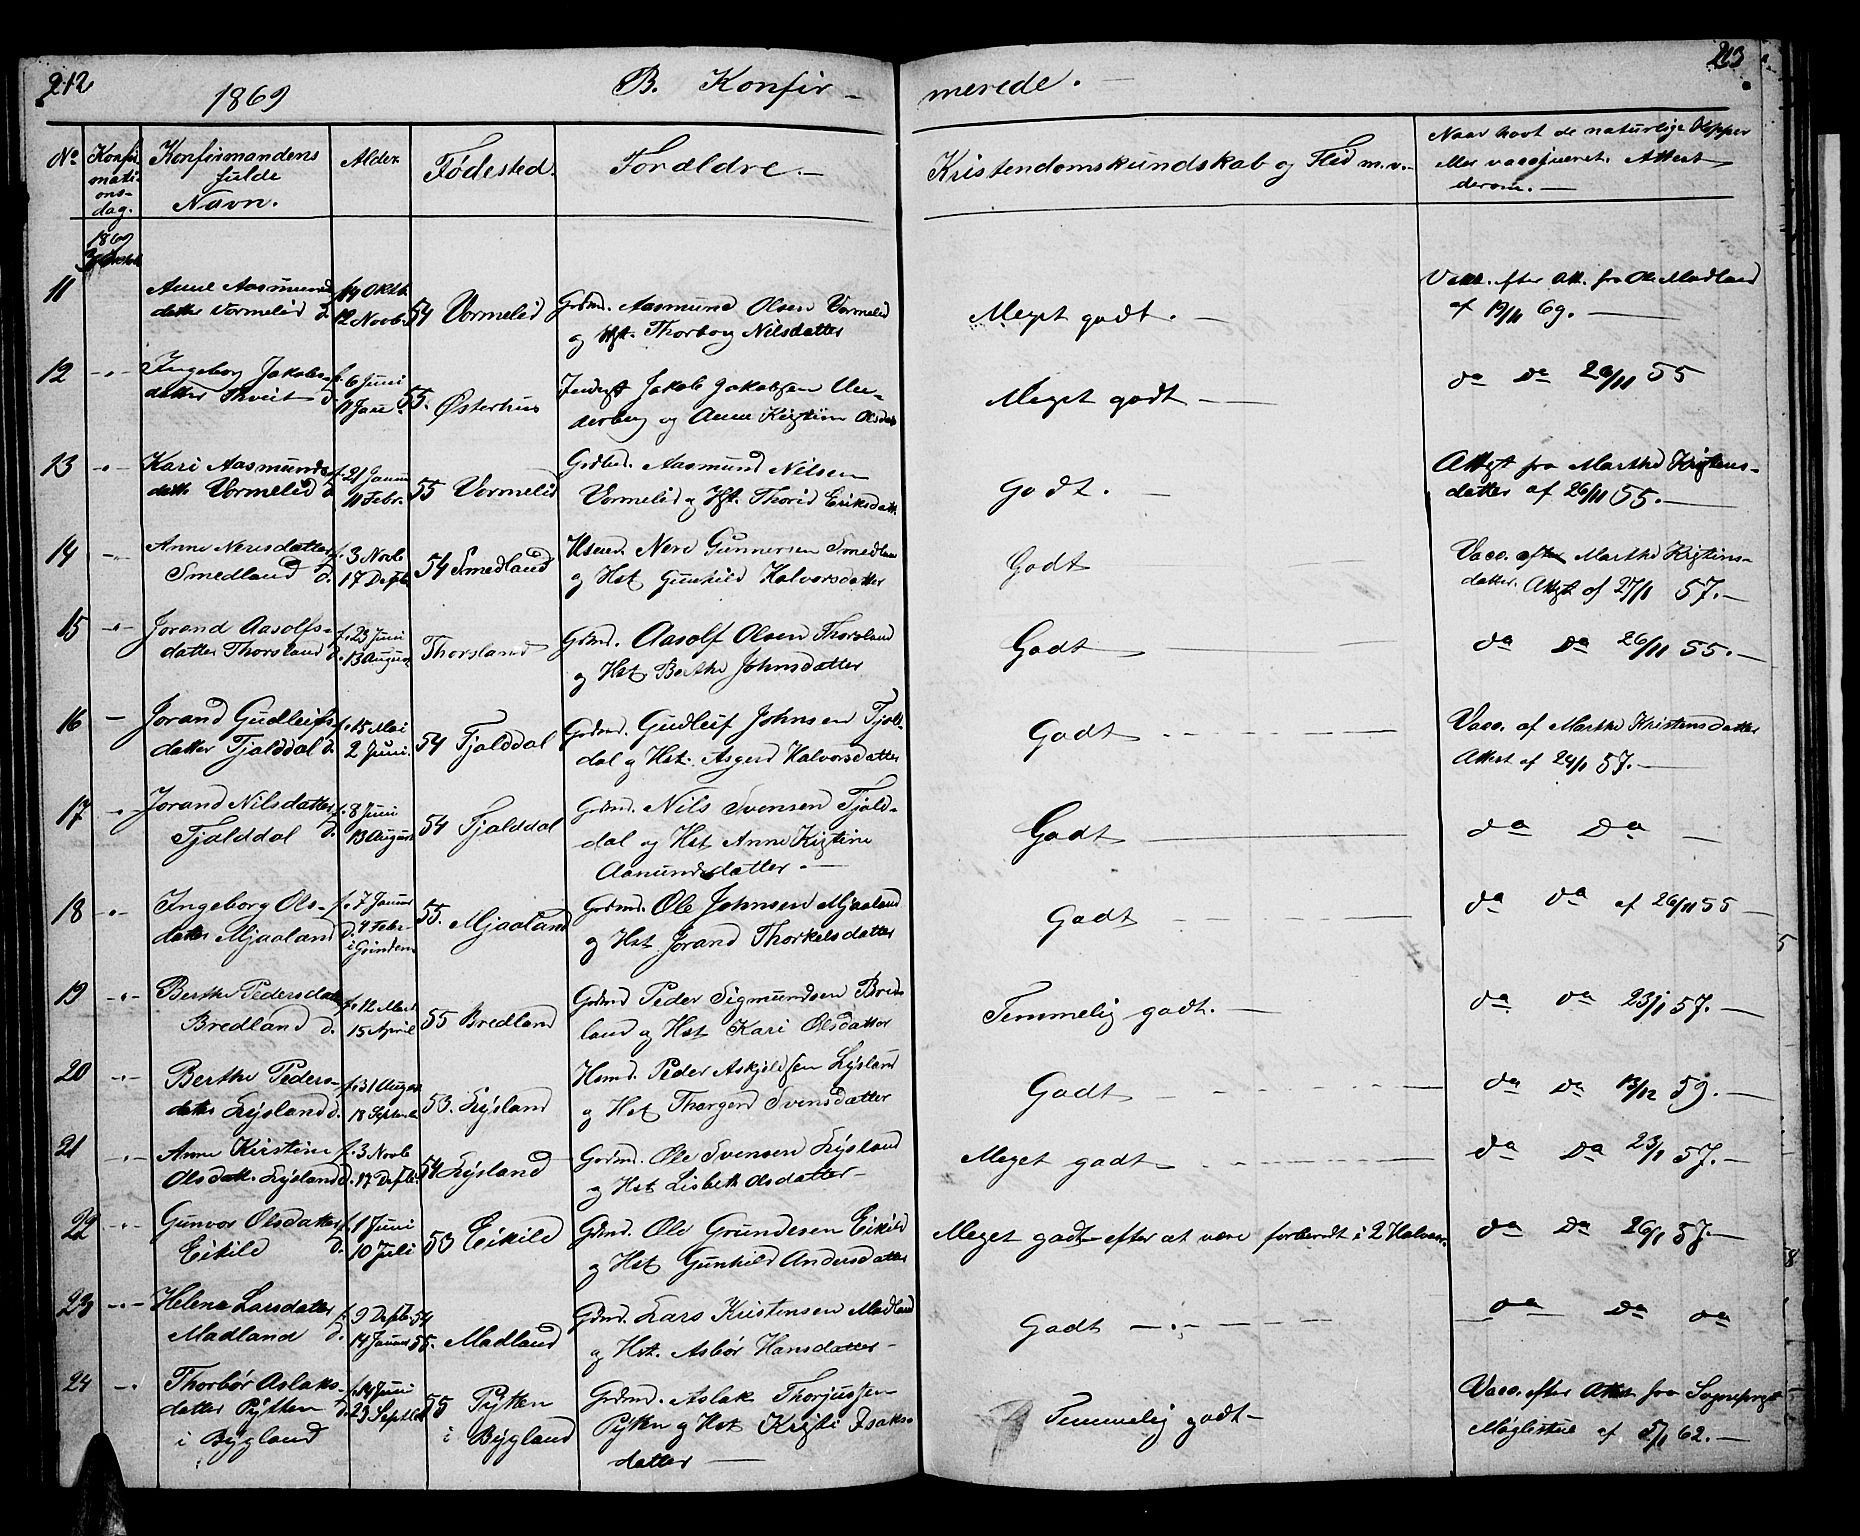 212
213
1869
B. Konfir-
merede.
No
Konfir
mati-
ons-
dag.
Konfirmandens
fulde
Navn.
Alder
Fødested.
Forældre.
Kristendomskundskab og Flid m.v.
Naar havt de naturlige Kopper
eller vaccineret. Attest
derom.
1869
11
Anne Aasmunds
datter Vormelid
f. 19 Oktb.
d. 12 Novb.
54 Vormelid
Grdmd. Aasmund Olsen Vormelid
og Hst. Thorbog Nilsdatter
Meget godt.
Vacc. efter Att. fra Ole Madland
af 19/11 69.
12
Ingeborg Jakobs-
datter Thveit
f. 6 Juni
d. 17 Janu.
55. Østerhus
Inderst Jakob Jakobsen Un-
derberg og Anne Kristine Olsdat
Meget godt
da Da 26/11 55
13
Kari Aasmunds
datt. Vormelid
f. 21 Januar
d. 11 Febr.
55 Vormelid
Grdmd. Aasmund Nilsen
Vormelid og Hst. Thorid Eriksdatt.
Godt.
Attest fra Marthe Kristens-
datter af 26/11 55.
14
Anne Neresdatter
Smedland
f. 3 Novb
d. 17 Decb
54 Smedland
Hsmd. Nere Gunnersen Smedland
og Hst Gunhild Halvorsdatter
Godt
Vacc. efter Marthe Kristins-
datter. Attest af 27/1 57.
15
Jorand Aasolfs-
datter Thorsland
f. 23 Juni
d. 13 August
Thorsland
Grdmd. Aasolf Olsen Thorsland
og Hst. Berthe Johnsdatter
Godt
da Da 26/11 55.
16
Jorand Gudleifs
datter Tjalddal
f. 15 Mai
d. 2 Juni.
54 Tjalddal
Grdmd. Gudleif Johnsen Tjold-
dal og Hst. Asgerd Halvorsdatter
Godt
Vacc. af Marthe Kristensdatter
Attest af 24/1 57.
17
Jorand Nilsdatter
Tjalddal
f. 8 Juni
d. 13 August
54 Tjalddal
Grdmd. Nils Svensen Tjold-
dal og Hst Anne Kristine
Aanundsdatter
Godt
da Da
18
Ingeborg Ols-
datter Mjaaland
f. 7 Januar
d. 4 Febr
i Grindem
55. Mjaaland
Grdmd. Ole Johnsen Mjaaland
og Hst. Jorand Thorkelsdatter
Godt
da da af 26/11 55
19
Berthe Pedersdatt
Bredland
f. 12 Marts
d. 15 April
55 Bredland
Grdmd Peder Sigmundsen Bred-
land og Hst Kari Olsdatter
Temmelig godt.
da da 23/1 57.
20
Berthe Peders-
datter Lysland
f. 31 August
d. 18 Septemb
53. Lysland
Hsmd. Peder Askjeldsen Lysland
og Hst Thorgerd Svensdatter
Godt
da Da 13/12 59.
21
Anne Kirstine
Olsdatt. Lysland
f. 3 Novb
d. 17 Decb.
54 Lysland
Grdmd. Ole Svensen Lysland
og Hst Lisbeth Olsdatter
Meget godt
da Da 23/1 57.
22
Gunvor Olsdatter
Eikild
f. 1 Juni
d. 10 Juli
53 Eikild
Grdmd. Ole Grundesen Eikild
og Hst Gunhild Andersdatter
Meget godt efter at være forberedt i 2 Halvaar.
da Da 26/1 57.
23
Helene Larsdatter
Madland
f. 9 Decb. 54
d. 14 Januar 55.
Madland
Grdmd. Lars Kristensen Madland
og Hst. Asbør Hansdatter
Godt
da Da da
24
Thorbør Aslaks-
datter Pytten
i Bygland
f. 14 Juni
d. 23 Septbr
55
Pytten
i Bygland
Grdmd. Aslak Thorjussen
Pytten og Hst Kristi Isaks-
datter
Temmelig godt
Vacc. efter Attest fra Sognepræst
Møglestue af 5/1 62.